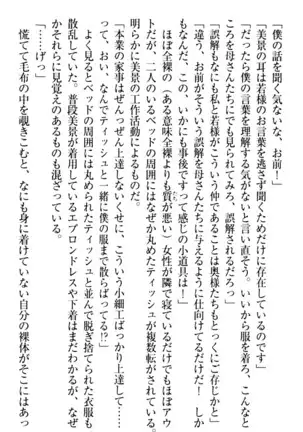 「僕の話を聞く気がないな、お前！」
「美景の耳は若様のお言葉を逃さず聞くためだけに存在しているのに？」
「だったら僕の言葉を理解する気がないと言い直そう。いいから服を着ろ、こんなと
ころを母さんたちにでも見られてみろ、誤解されるだろっ」
「誤解もなにも私と若様がこういう仲であることは奥様たちもとっくにご存じかと」
「違う、お前がそういう誤解を母さんたちに与えるように仕向けてるだけだ！　しか
もなんだこの、いかにも事後ですって感じの小道具は！」
ほぼ全裸の（ある意味全裸よりも質が悪い）女性が隣で寝ているだけでもほぼアウ
トだが、二人のいるベッドの周囲にはなぜか丸めたティッシュが複数転がされていた。
明らかに美景の工作活動によるものだ。
「本業の家事はぜんぜん上達しないくせに、こういう小細工ばっかり上達して……
って、おい、なんでティッシュと一緒に僕の服まで散らばってる!?」
よく見るとベッドの周囲には丸められたティッシュと並んで脱ぎ捨てられた衣服も
散乱していた。普段美景が着用しているエプロンドレスや下着はまだわかるが、なぜ
かそれに見覚えのあるものも混ざっている。
「……げっ」
慌てて毛布の中を覗きこむと、なにも身に着けていない自分の裸体がそこにはあっ